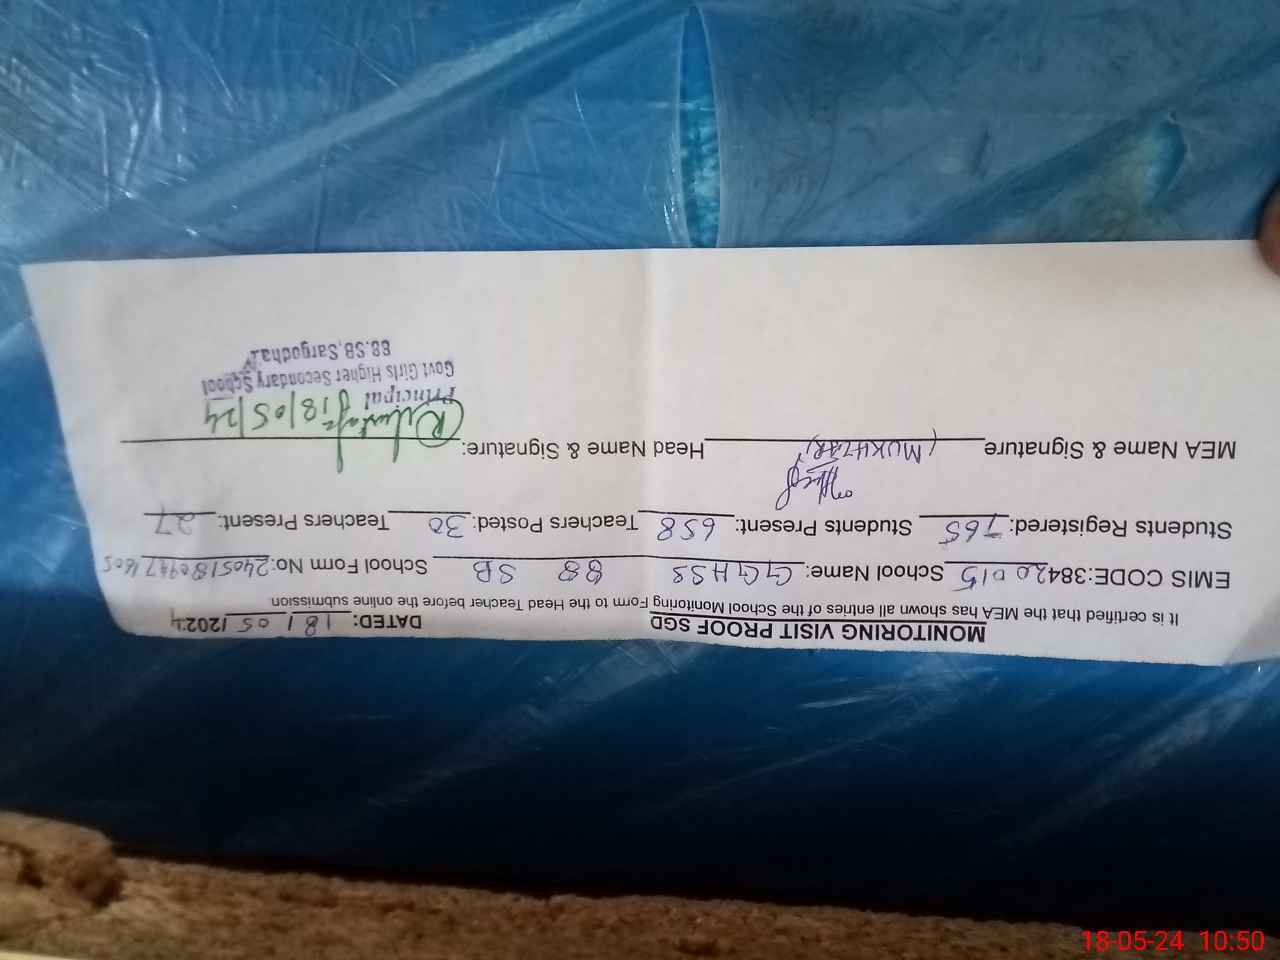 MONITORING VISIT PROOF SGD DATED: 18/05/2024
It is certified that the MEA has shown all entries of the School Monitoring Form to the Head Teacher before the online submission.
EMIS CODE:38420015 School Name: GGHSS 88 SB School Form No:
Students Registered: 765 Students Present: 658 Teachers Posted: 30 Teachers Present: 27
MEA Name & Signature (MUKHTAR) Head Name & Signature:
18/05/24
Principal
Govt.Girls Higher Secondary School
88.SB,Sargodha
18-05-24 10:50